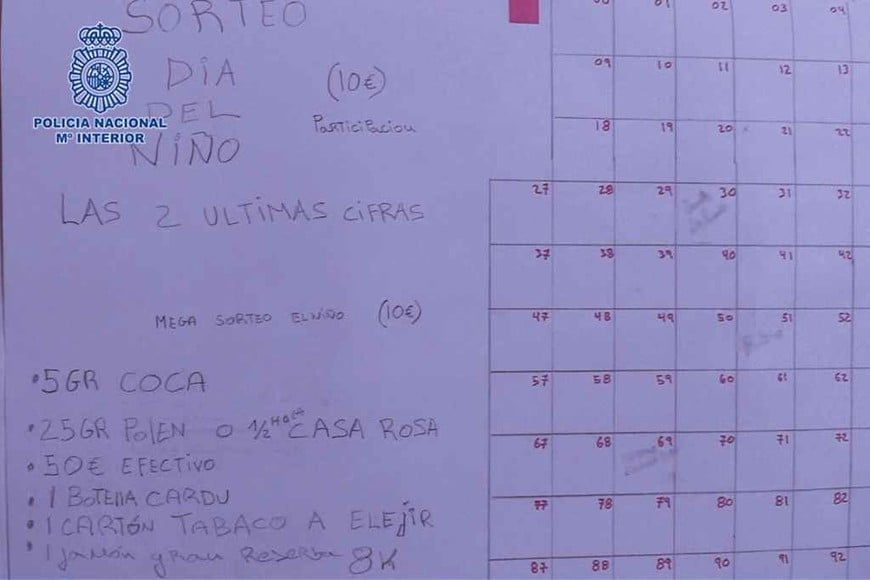 SORTEO
DIA
DEL
NIÑO
(10€)
Participacion
POLICIA NACIONAL
Mº INTERIOR
LAS 2 ULTIMAS CIFRAS
MEGA SORTEO EL NIÑO (10€)
•5GR COCA
•25GR POlEN O 1/2 HORA CASA ROSA
•50€ EFECTIVO
•1 BOTEllA CARDU
•1 CARTÓN TABACO A ELEJIR
•1 jamón gran Reserba 8K
00 01 02 03 04
09 10 11 12 13
18 19 20 21 22
27 28 29 30 31 32
37 38 39 40 41 42
47 48 49 50 51 52
57 58 59 60 61 62
67 68 69 70 71 72
77 78 79 80 81 82
87 88 89 90 91 92